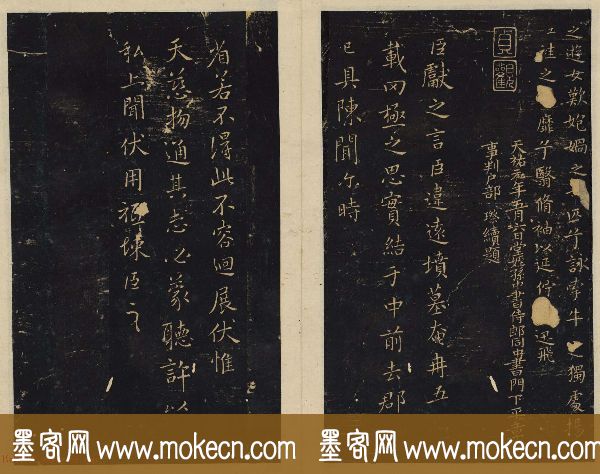 之遊女歎匏媧之匹兮詠牽牛之獨處揚
之靡兮翳脩袖以延佇迅飛
貞觀
天祐元年五月
事判戶部璨續題
臣獻之言臣違遠墳墓奄冉五
載罔極之思實結于中前去郡
已具陳聞尒時
省若不得此不容迴展伏惟
天慈物通其志必蒙聽許以
私上聞伏用悚臣之
墨客网 www.mokecn.com 墨客网 www.mokecn.com